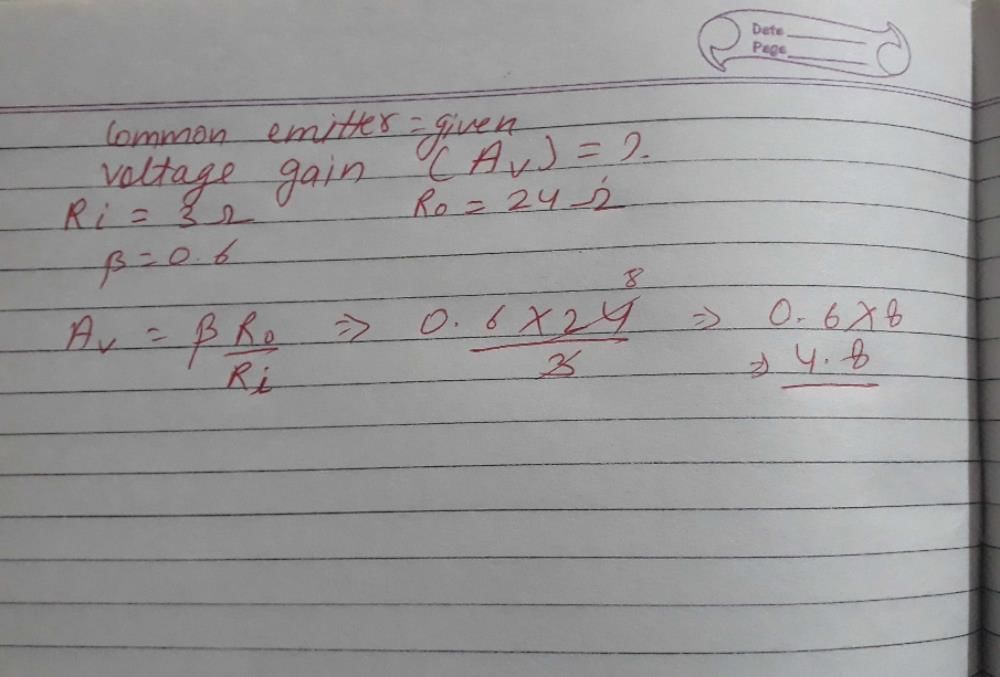 Date
Page
Common emitter = given
voltage gain (Av) = ?
Ri = 3 Ω Ro = 24 Ω
β = 0.6
8
Av = β Ro/Ri ⇒ 0.6 X 24/3 ⇒ 0.6 X 8
⇒ 4.8